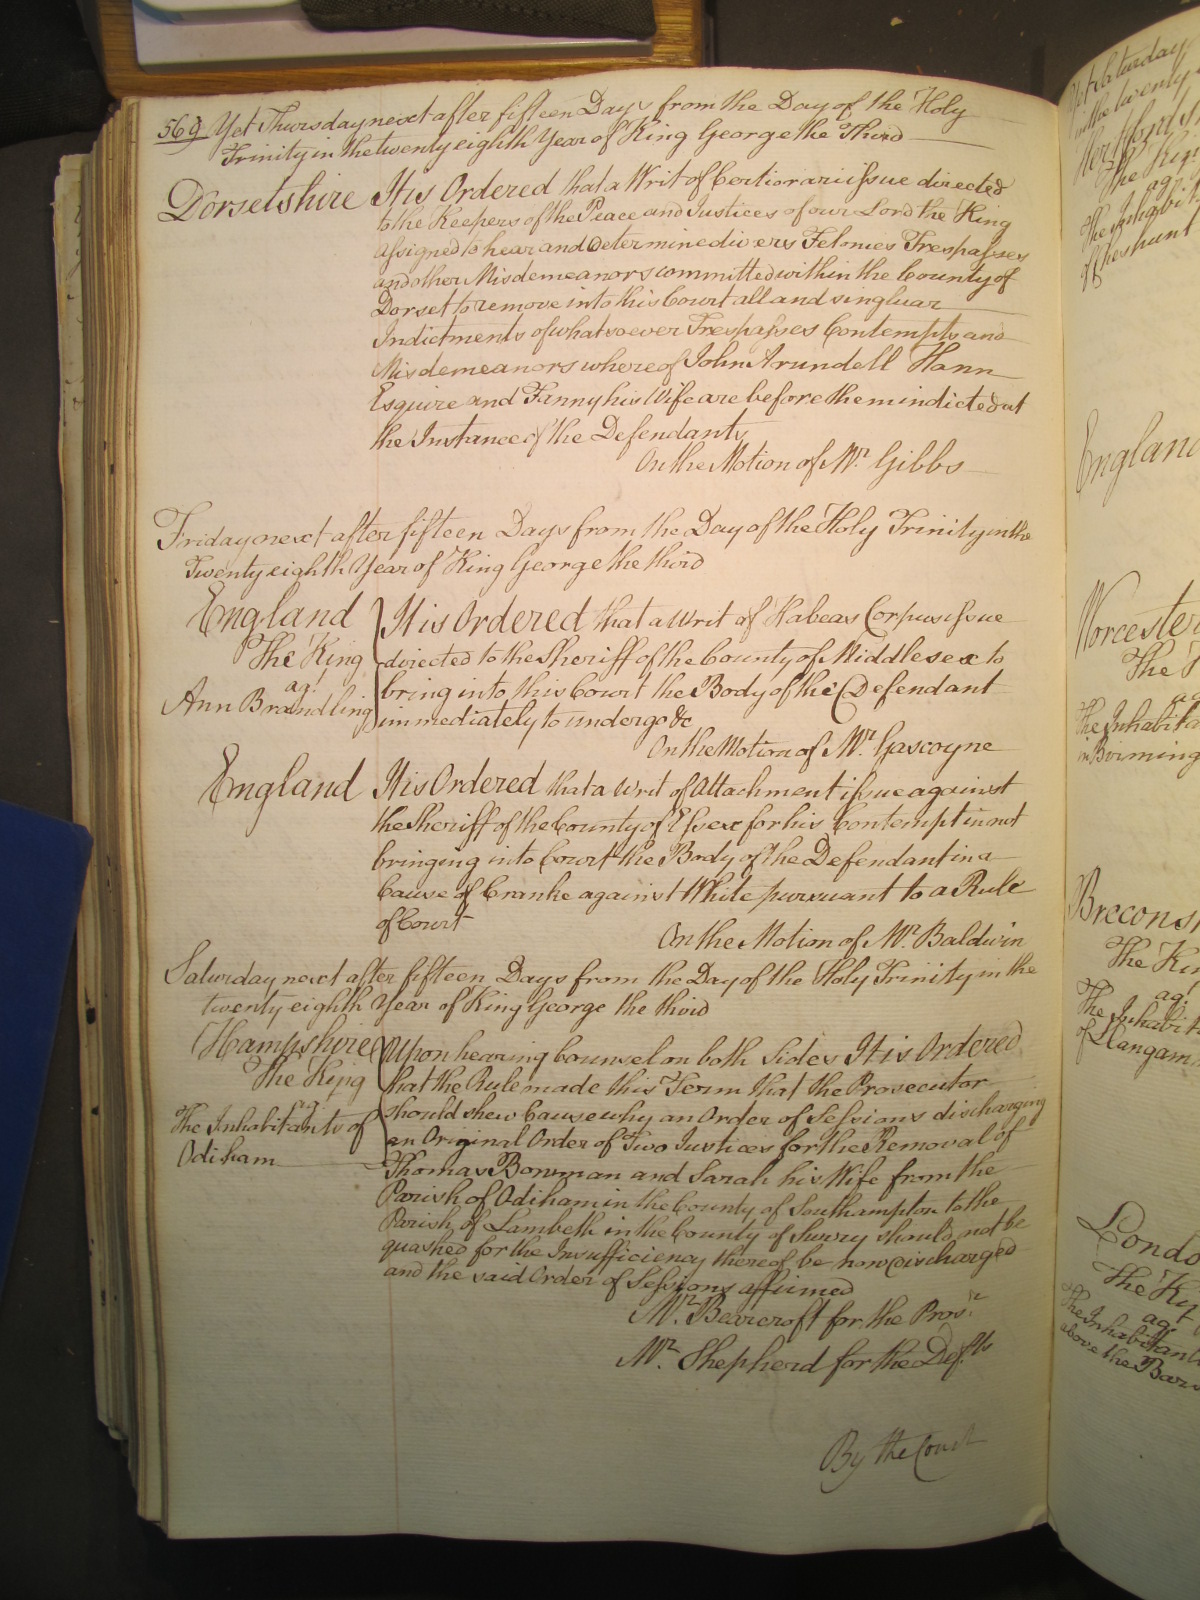 569 Yet Thursday next after fifteen Days from the Day of the Holy
Trinity in the twenty eighth Year of King George the Third
Dorsetshire It is Ordered that a Writ of Certiorari issue directed
to the Keepers of the Peace and Justices of our Lord the King
assigned to hear and determine divers Felonies Trespasses
and other Misdemeanors committed within the County of
Dorset to remove into this Court all and singluar
Indictments of whatsoever Trespasses Contempts and
Misdemeanors whereof John Arundell Hann
Esquire and Fanny his Wife are before them indicted at
the Instance of the Defendants
On the Motion of Mr. Gibbs
Friday next after fifteen Days from the Day of the Holy Trinity in the
Twenty eighth Year of King George the third
England
The King
agt
Ann Brandling
It is Ordered that a Writ of Habeas Corpus issue
directed to the Sheriff of the County of Middlesex to
bring into this Court the Body of the Defendant
immediately to undergo &c
On the Motion of Mr. Gascoyne
England It is Ordered that a Writ of Attachment issue against
the Sheriff of the County of Essex for his Contempt in not
bringing into Court the Body of the Defendant in a
Cause of Cranke against White pursuant to a Rule
of Court
On the Motion of Mr. Baldwin
Saturday next after fifteen Days from the Day of the Holy Trinity in the
twenty eighth Year of King George the third
Hampshire
The King
agt
The Inhabitants of
Odiham
Upon hearing Counsel on both Sides It is Ordered
that the Rule made this Term that the Prosecutor
should shew Cause why an Order of Sessions discharging
an Original Order of Two Justices for the Removal of
Thomas Bowman and Sarah his Wife from the
Parish of Odiham in the County of Southampton to the
Parish of Lambeth in the County of Surry should not be
quashed for the Insufficiency thereof be now discharged
and the said Order of Sessions affirmed
Mr. Bearcroft for the Pros.r
Mr. Shepherd for the Def.ts
By the Court
Yet Saturday
in the twenty
The King
agt
The Inhabit
of Cheshunt
England
Worcester
The
ag
The Inhabita
in Birming
Brecons
The Kin
ag.t
The Inhabit
of Llangam
Londo
The Kin
ag.t
The Inhabitant
above the Bars